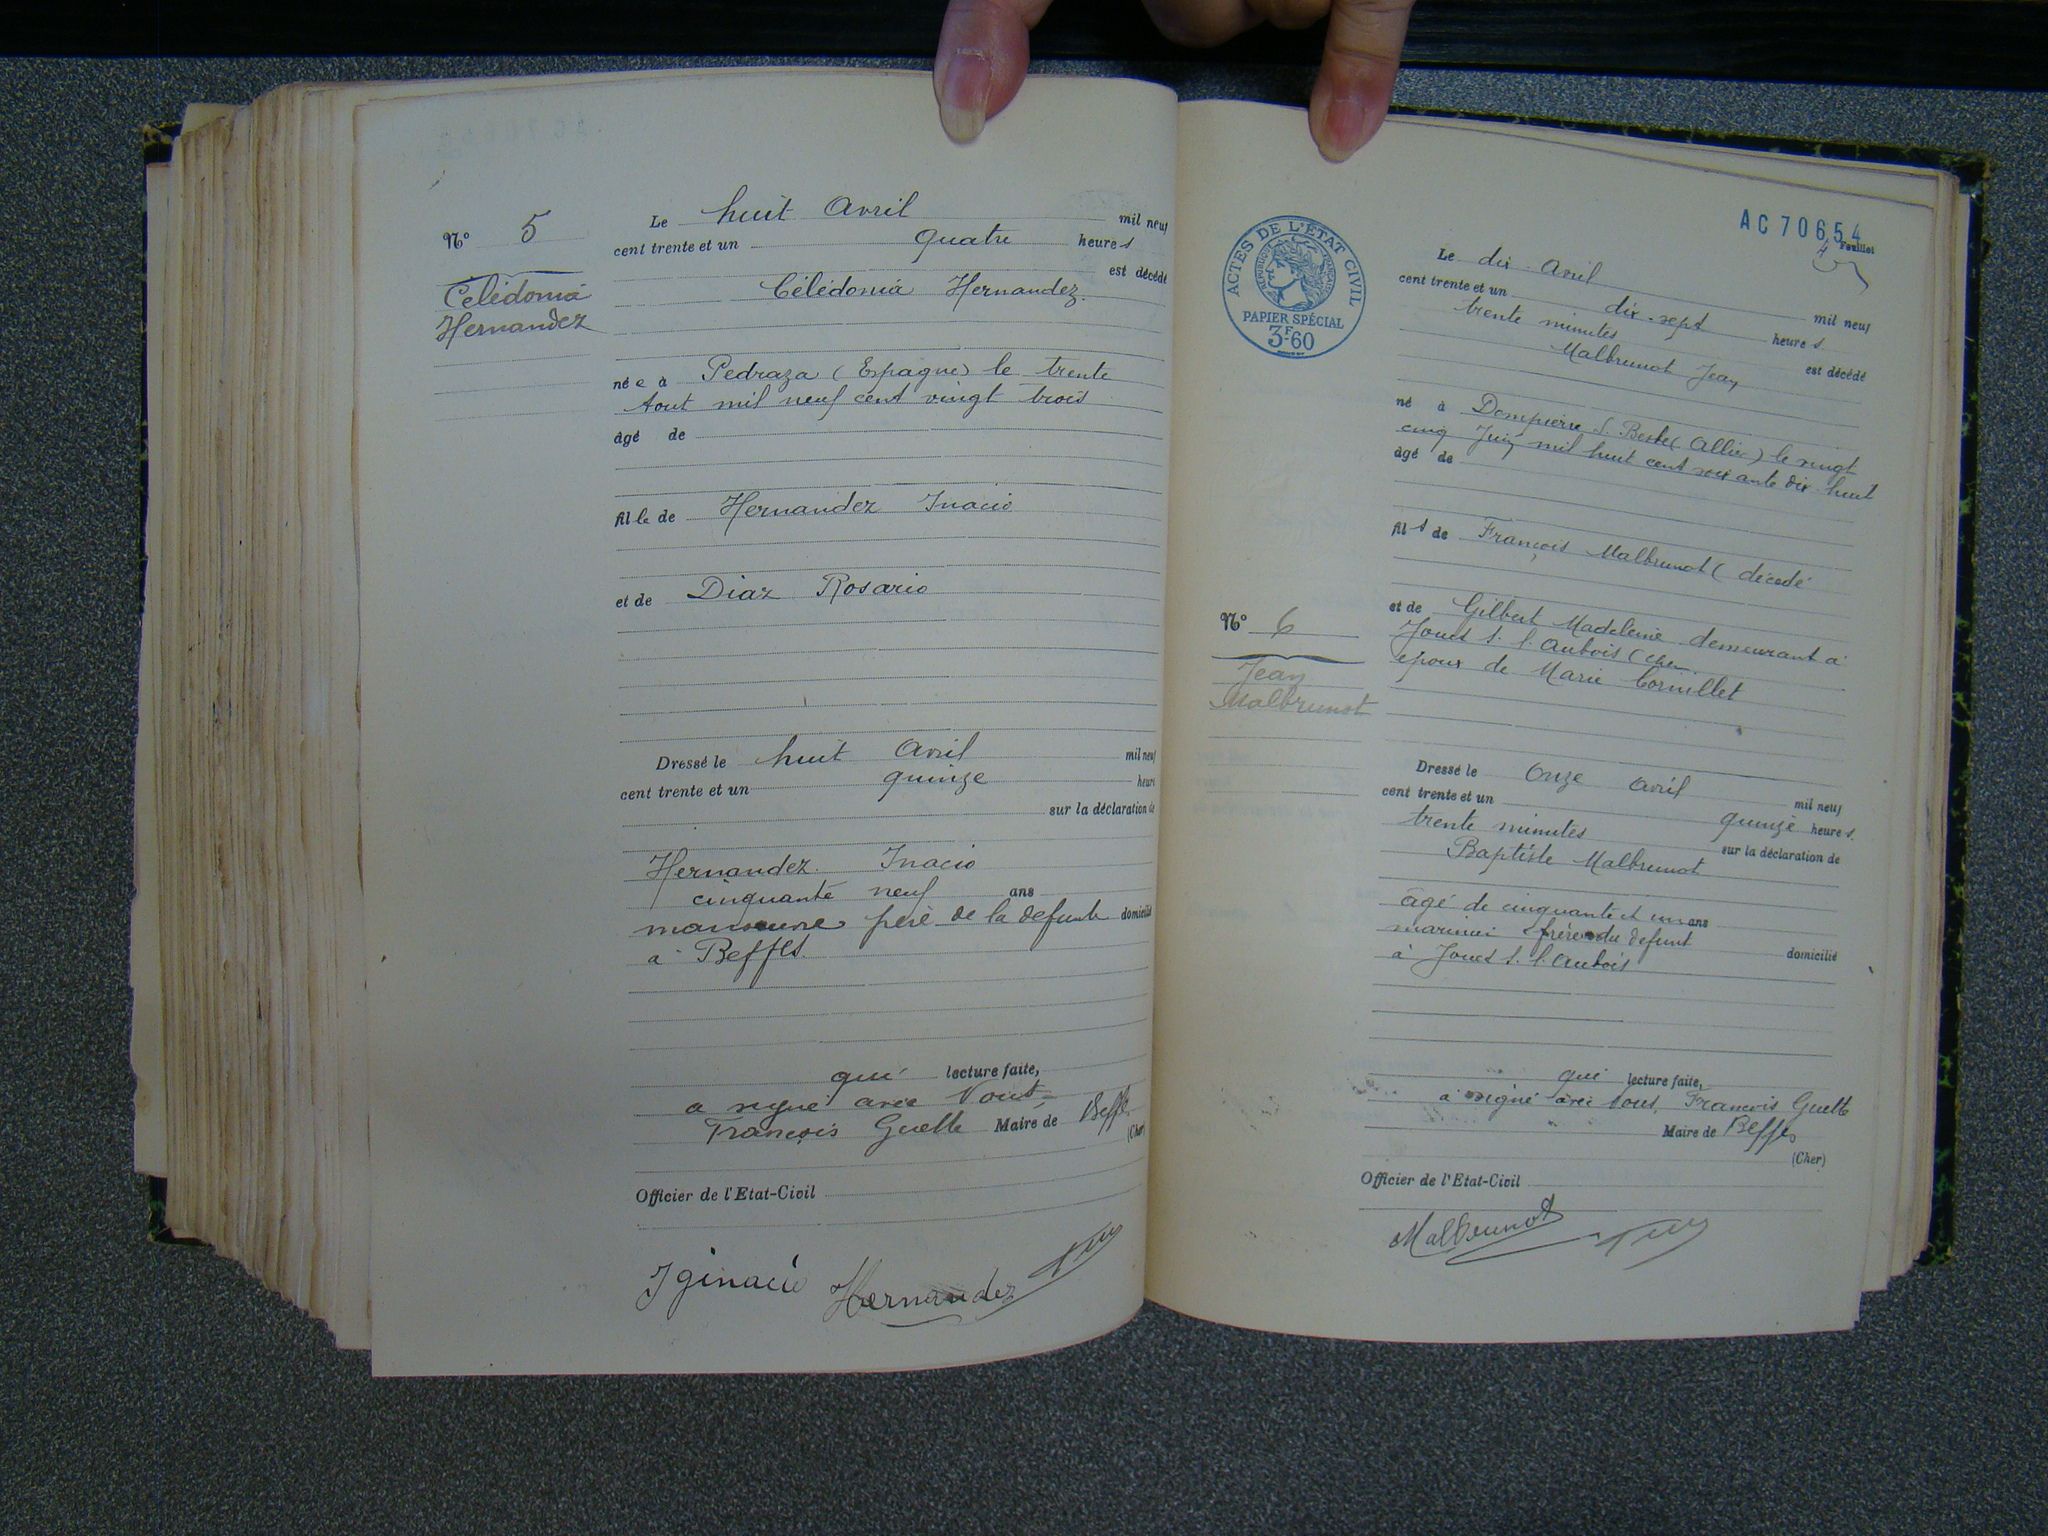 N° 5
Célédonia
Hernandez
Le huit Avril mil neuf
cent trente et un quatre heures
est décédé
Célédonia Hernandez.
née à Pedraza (Espagne) le trente
Aout mil neuf cent vingt trois
âgé de
fille de Hernandez Inacio
et de Diaz Rosario
Dressé le huit Avril mil neuf
cent trente et un quinze heure
sur la déclaration de
Hernandez. Inacio
cinquante neuf ans
manoeuvre père de la defunte domicilié
à Beffes.
qui lecture faite,
a signé avec Nous,
François Guette Maire de Beffes
(Cher)
Officier de l'Etat-Civil
Iginacio Hernandez
AC 70654
4 Feuillet
ACTES DE L'ETAT CIVIL
REPUBLIQUE FRANÇAISE
PAPIER SPÉCIAL
3F60
N° 6
Jean
Malbrunot
Le dix Avril mil neuf
cent trente et un dix-sept heures
trente minutes est décédé
Malbrunot Jean
né à Dompierre s. Besbe (Allier) le vingt
cinq Juin mil huit cent soixante dix-huit
âgé de
fils de François Malbrunot (décédé
et de Gilbert Madeleine demeurant à
Jouet s. l. Aubois (Cher
époux de Marie Cornillet
Dressé le Onze Avril mil neuf
cent trente et un quinze heures
trente minutes sur la déclaration de
Baptiste Malbrunot
âgé de cinquante et un ans
marinier frère du defunt domicilié
à Jouet s. l. Aubois
qui lecture faite,
a signé avec Nous, François Guette
Maire de Beffes
(Cher)
Officier de l'Etat-Civil
Malbrunot